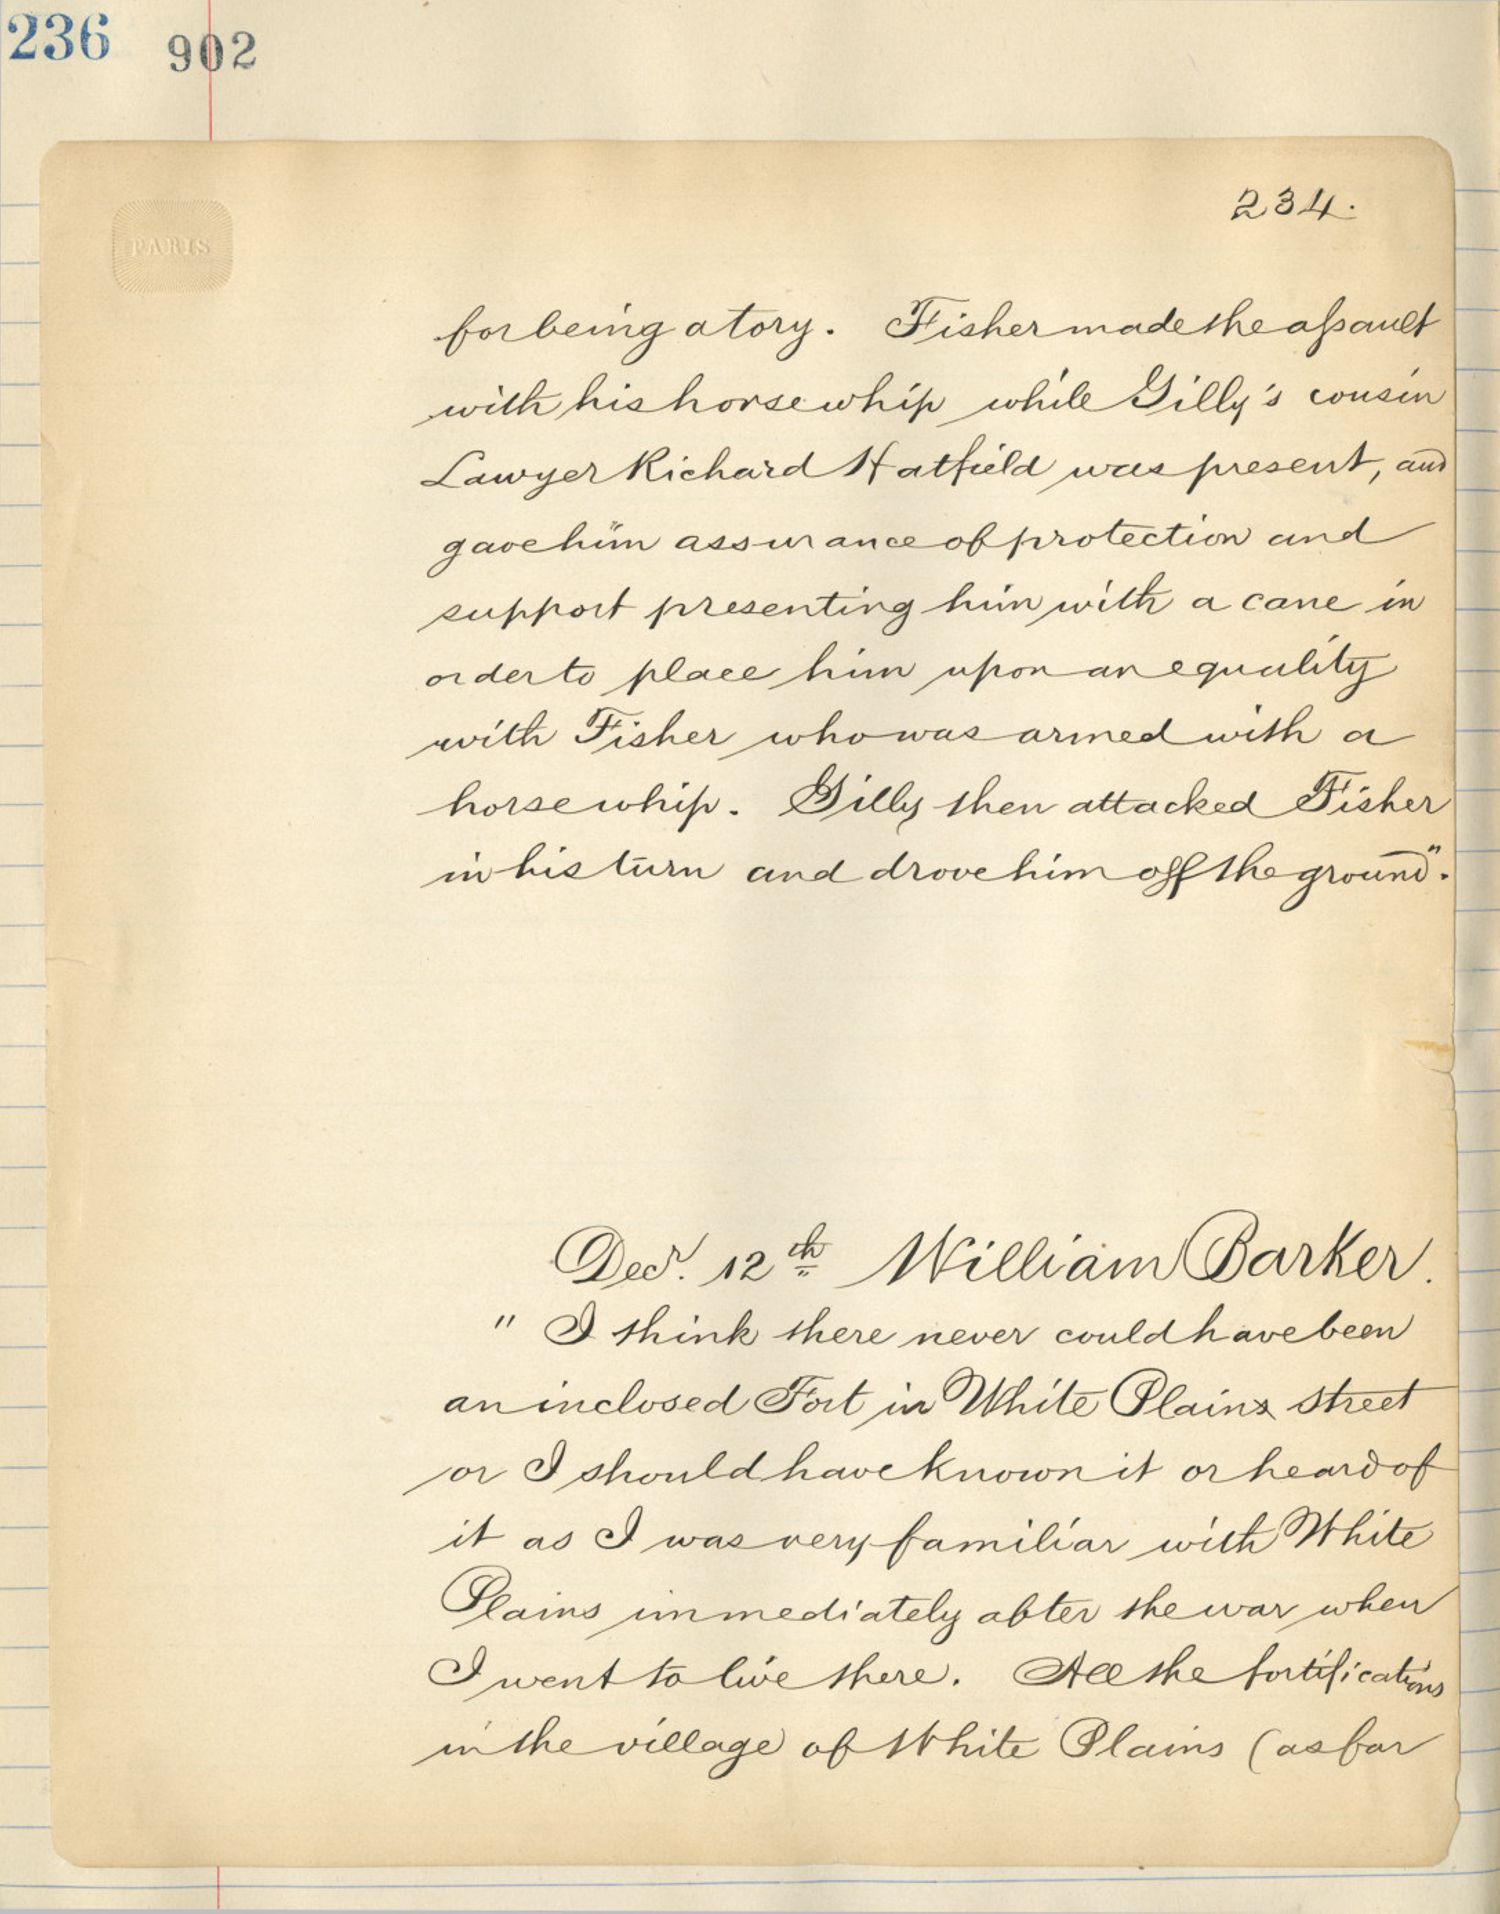 236 902
PARIS
234.
for being a tory. Fisher made the assault
with his horsewhip while Gilly's cousin
Lawyer Richard Hatfield was present, and
gave him assurance of protection and
support presenting him with a cane in
order to place him upon an equality
with Fisher who was armed with a
horsewhip. Gilly then attacked Fisher
in his turn and drove him off the ground".
Decr. 12th William Barker.
" I think there never could have been
an inclosed Fort in White Plains street
or I should have known it or heard of
it as I was very familiar with White
Plains immediately after the war when
I went to live there. All the fortifications
in the village of White Plains (as far